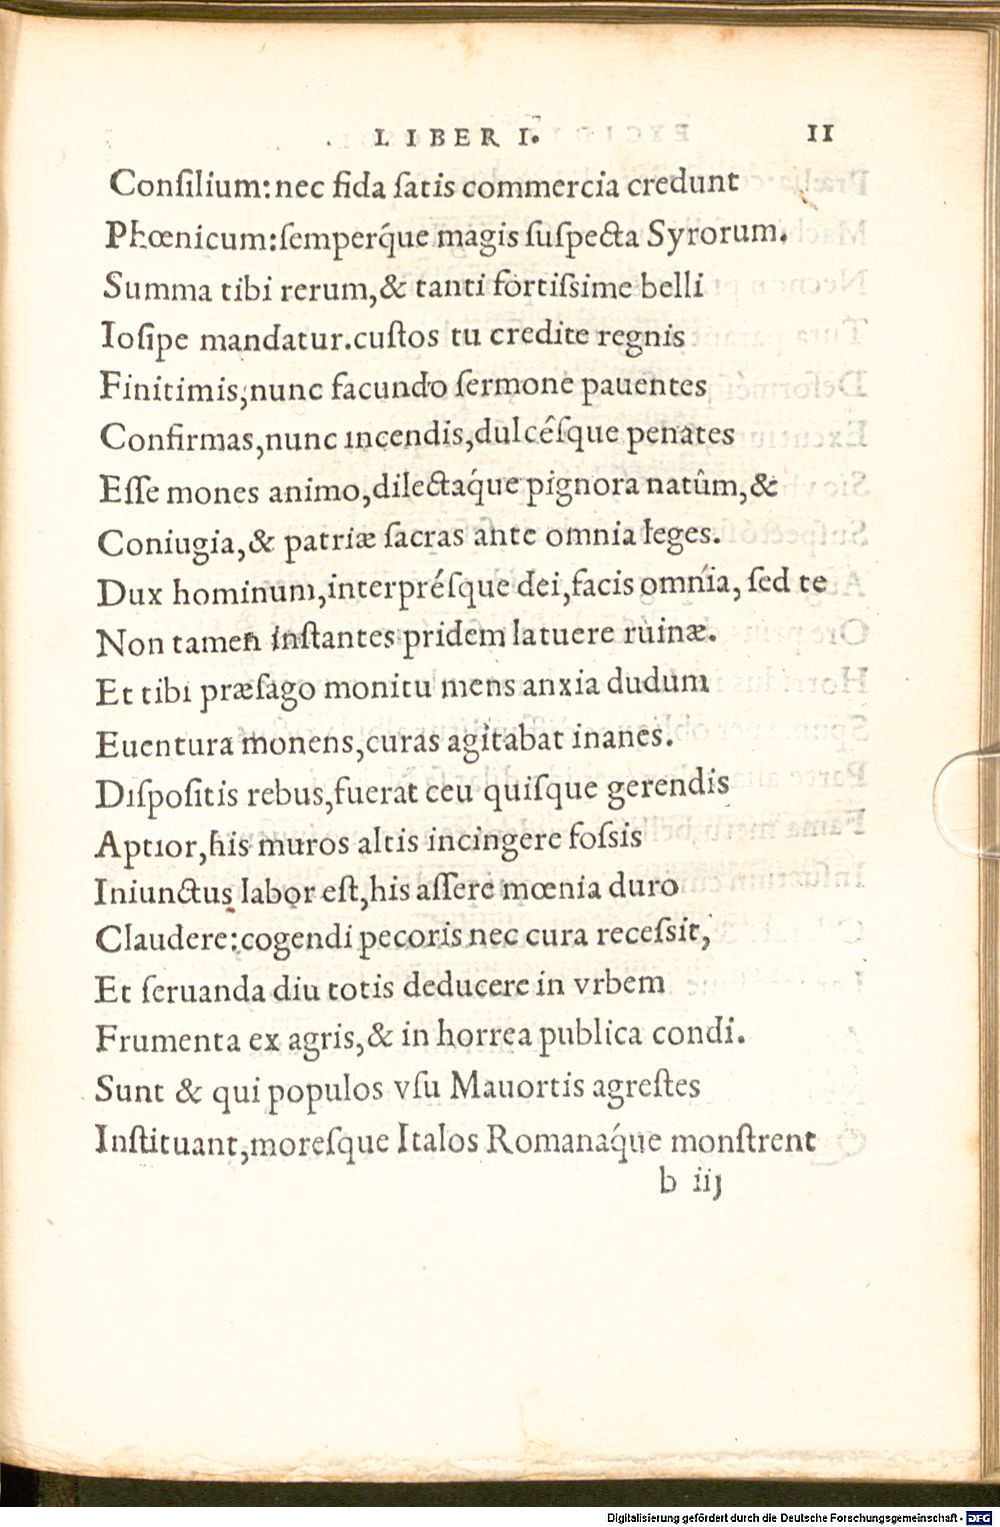 LIBER I. 11
Conſilium: nec fida ſatis commercia credunt
Phœnicum: ſemperq́ue magis ſuſpecta Syrorum.
Summa tibi rerum, & tanti fortiſsime belli
Ioſipe mandatur. cuſtos tu credite regnis
Finitimis, nunc facundo ſermone pauentes
Confirmas, nunc incendis, dulcêſque penates
Eſſe mones animo, dilectaq́ue pignora natûm, &
Coniugia, & patriæ ſacras ante omnia leges.
Dux hominum, interpréſque dei, facis omnia, ſed te
Non tamen inſtantes pridem latuere ruinæ.
Et tibi præſago monitu mens anxia dudum
Euentura monens, curas agitabat inanes.
Diſpoſitis rebus, fuerat ceu quiſque gerendis
Aptior, his muros altis incingere foſsis
Iniunctus labor eſt, his aſſere mœnia duro
Claudere: cogendi pecoris nec cura receſsit,
Et ſeruanda diu totis deducere in vrbem
Frumenta ex agris, & in horrea publica condi.
Sunt & qui populos vſu Mauortis agreſtes
Inſtituant, moreſque Italos Romanaq́ue monſtrent
b iij
Digitalisierung gefördert durch die Deutsche Forschungsgemeinschaft - DFG